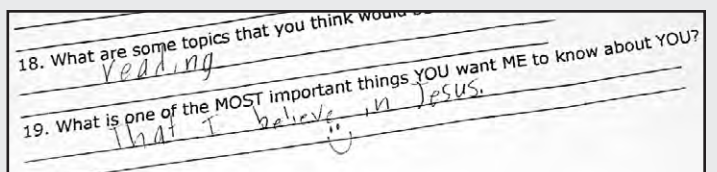 18. What are some topics that you think would
reading
19. What is one of the MOST important things YOU want ME to know about YOU?
That I believe in Jesus.